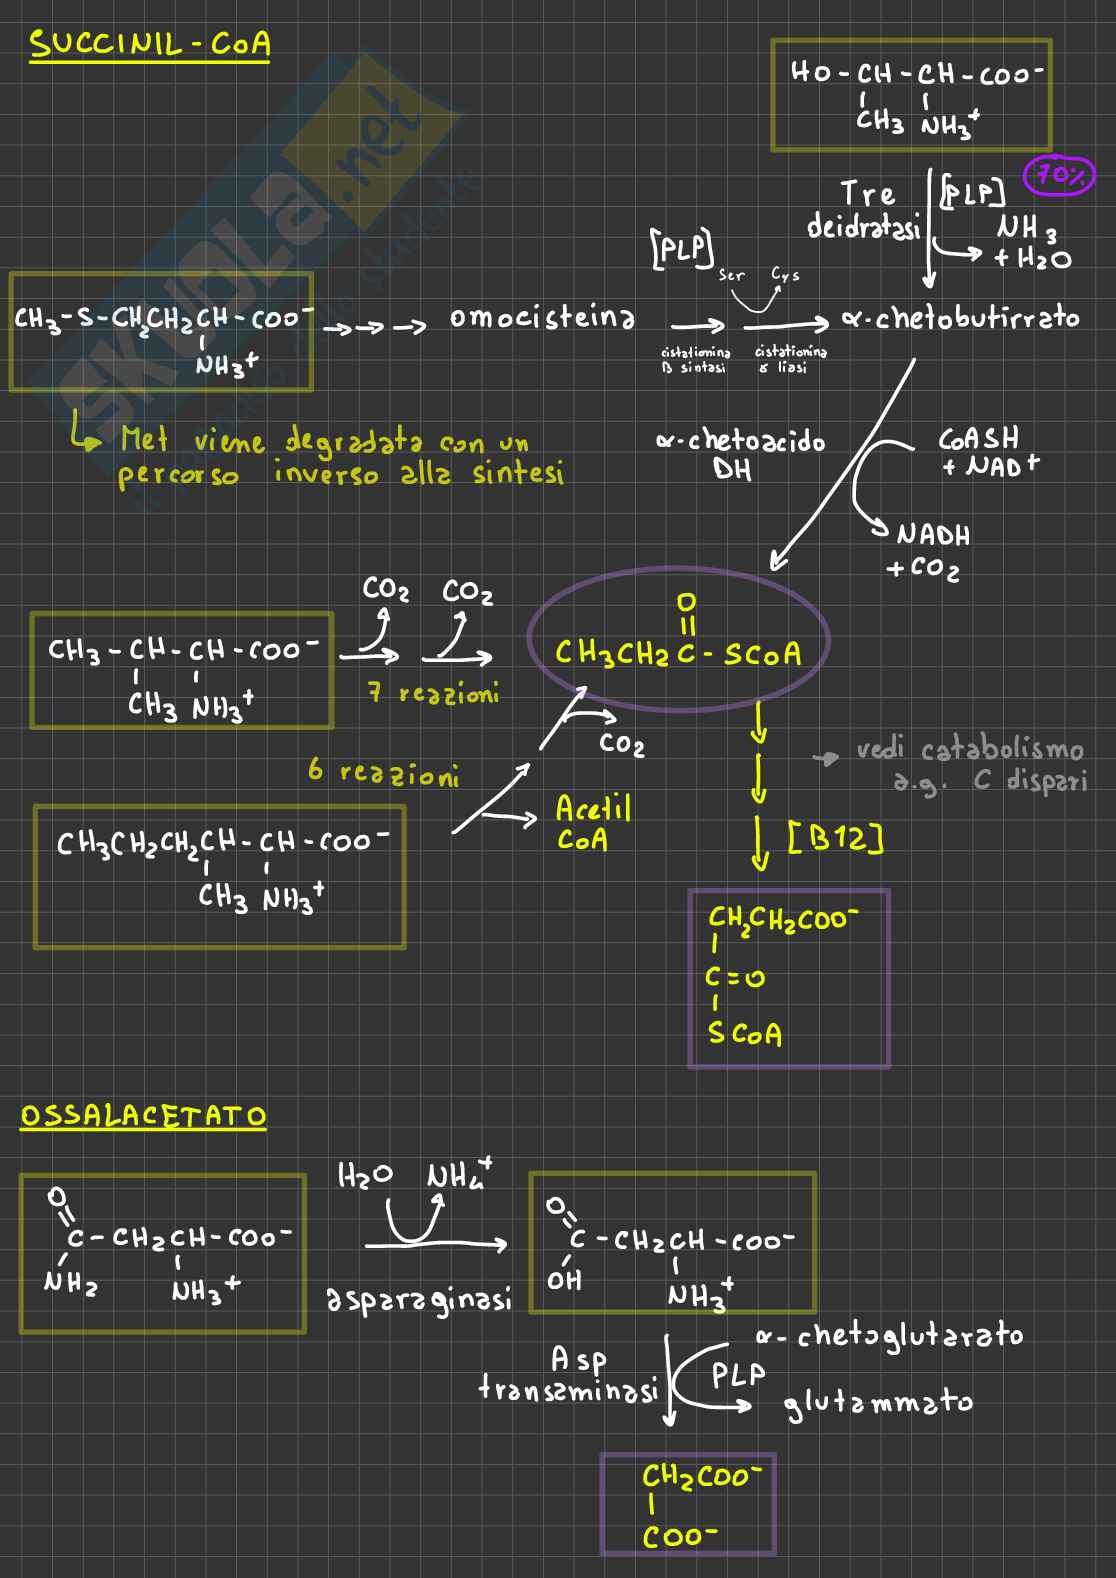 SUCCINIL-CoA
HO-CH-CH-COO-
CH3 NH3+
70%
Tre
deidratasi
[PLP]
NH3
+H2O
[PLP]
Ser Cys
CH3-S-CH2CH2CH-COO-
NH3+
omocisteina
cistationina
β sintasi
cistationina
γ liasi
α-chetobutirrato
Met viene degradata con un
percorso inverso alla sintesi
α-chetoacido
DH
CoASH
+ NAD+
NADH
+CO2
CO2 CO2
CH3-CH-CH-COO-
CH3 NH3+
7 reazioni
O
CH3CH2C-SCoA
CO2
6 reazioni
Acetil
CoA
vedi catabolismo
a.g. C dispari
[B12]
CH3CH2CH2CH-CH-COO-
CH3 NH3+
CH2CH2COO-
C=O
SCoA
OSSALACETATO
O
C-CH2CH-COO-
NH2 NH3+
H2O NH4+
asparaginasi
O
C-CH2CH-COO-
OH NH3+
Asp
transaminasi
α-chetoglutarato
PLP
glutammato
CH2COO-
COO-
SKUOLA.net